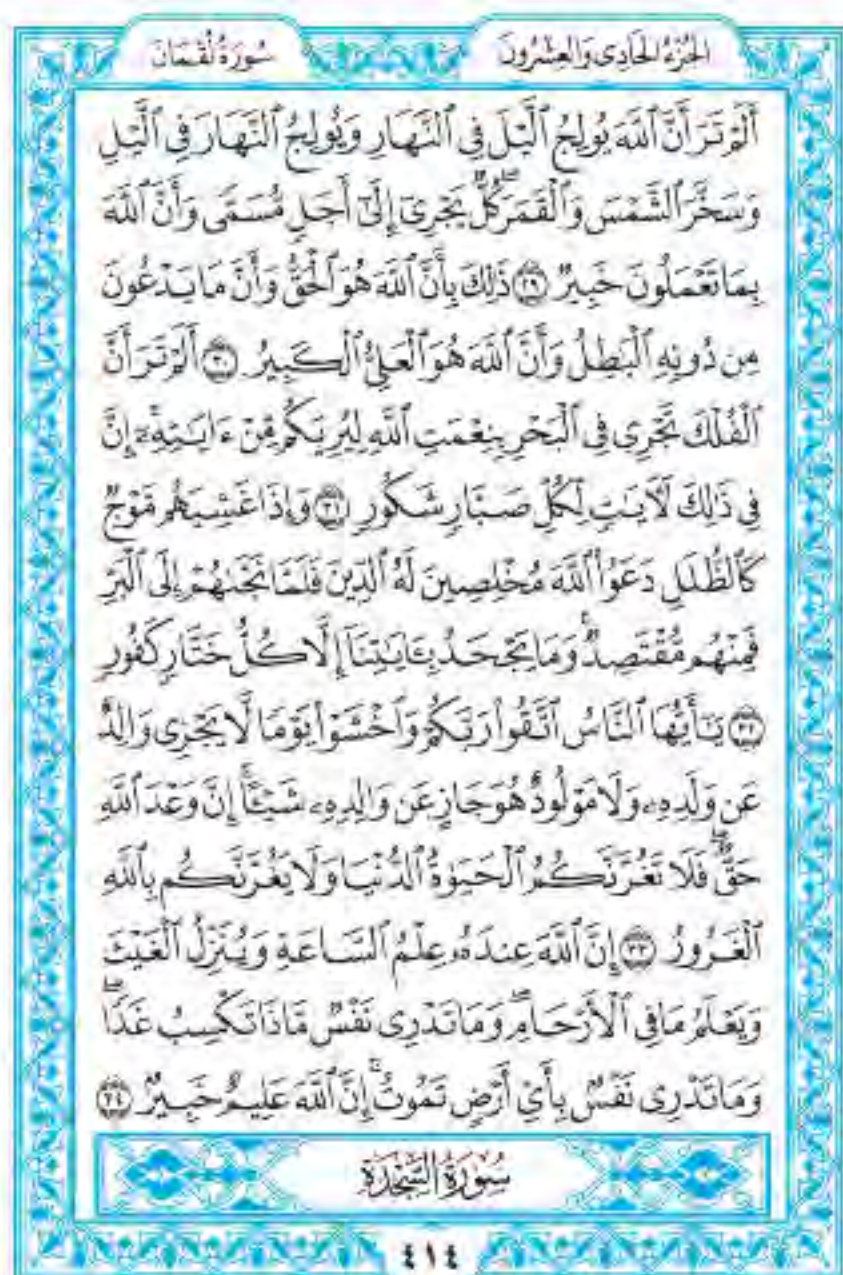 الجُزْءُ الحَادِى وَالعِشْرُونَ
سُورَةُ لُقْمَانَ
أَلَمْ تَرَ أَنَّ ٱللَّهَ يُولِجُ ٱلَّيْلَ فِى ٱلنَّهَارِ وَيُولِجُ ٱلنَّهَارَ فِى ٱلَّيْلِ
وَسَخَّرَ ٱلشَّمْسَ وَٱلْقَمَرَۖ كُلٌّ يَجْرِىٓ إِلَىٰٓ أَجَلٍ مُّسَمًّى وَأَنَّ ٱللَّهَ
بِمَا تَعْمَلُونَ خَبِيرٌ ٢٩ ذَٰلِكَ بِأَنَّ ٱللَّهَ هُوَ ٱلْحَقُّ وَأَنَّ مَا يَدْعُونَ
مِن دُونِهِ ٱلْبَٰطِلُ وَأَنَّ ٱللَّهَ هُوَ ٱلْعَلِىُّ ٱلْكَبِيرُ ٣٠ أَلَمْ تَرَ أَنَّ
ٱلْفُلْكَ تَجْرِى فِى ٱلْبَحْرِ بِنِعْمَتِ ٱللَّهِ لِيُرِيَكُم مِّنْ ءَايَٰتِهِۦٓۚ إِنَّ
فِى ذَٰلِكَ لَءَايَٰتٍ لِّكُلِّ صَبَّارٍ شَكُورٍ ٣١ وَإِذَا غَشِيَهُم مَّوْجٌ
كَٱلظُّلَلِ دَعَوُا۟ ٱللَّهَ مُخْلِصِينَ لَهُ ٱلدِّينَ فَلَمَّا نَجَّىٰهُمْ إِلَى ٱلْبَرِّ
فَمِنْهُم مُّقْتَصِدٌۚ وَمَا يَجْحَدُ بِـَٔايَٰتِنَآ إِلَّا كُلُّ خَتَّارٍ كَفُورٍ
٣٢ يَٰٓأَيُّهَا ٱلنَّاسُ ٱتَّقُوا۟ رَبَّكُمْ وَٱخْشَوْا۟ يَوْمًا لَّا يَجْزِى وَالِدٌ
عَن وَلَدِهِۦ وَلَا مَوْلُودٌ هُوَ جَازٍ عَن وَالِدِهِۦ شَيْـًٔاۚ إِنَّ وَعْدَ ٱللَّهِ
حَقٌّۖ فَلَا تَغُرَّنَّكُمُ ٱلْحَيَوٰةُ ٱلدُّنْيَا وَلَا يَغُرَّنَّكُم بِٱللَّهِ
ٱلْغَرُورُ ٣٣ إِنَّ ٱللَّهَ عِندَهُۥ عِلْمُ ٱلسَّاعَةِ وَيُنَزِّلُ ٱلْغَيْثَ
وَيَعْلَمُ مَا فِى ٱلْأَرْحَامِۖ وَمَا تَدْرِى نَفْسٌ مَّاذَا تَكْسِبُ غَدًاۖ
وَمَا تَدْرِى نَفْسٌۢ بِأَىِّ أَرْضٍ تَمُوتُۚ إِنَّ ٱللَّهَ عَلِيمٌ خَبِيرٌۢ ٣٤
سُورَةُ السَّجْدَةِ
٤١٤